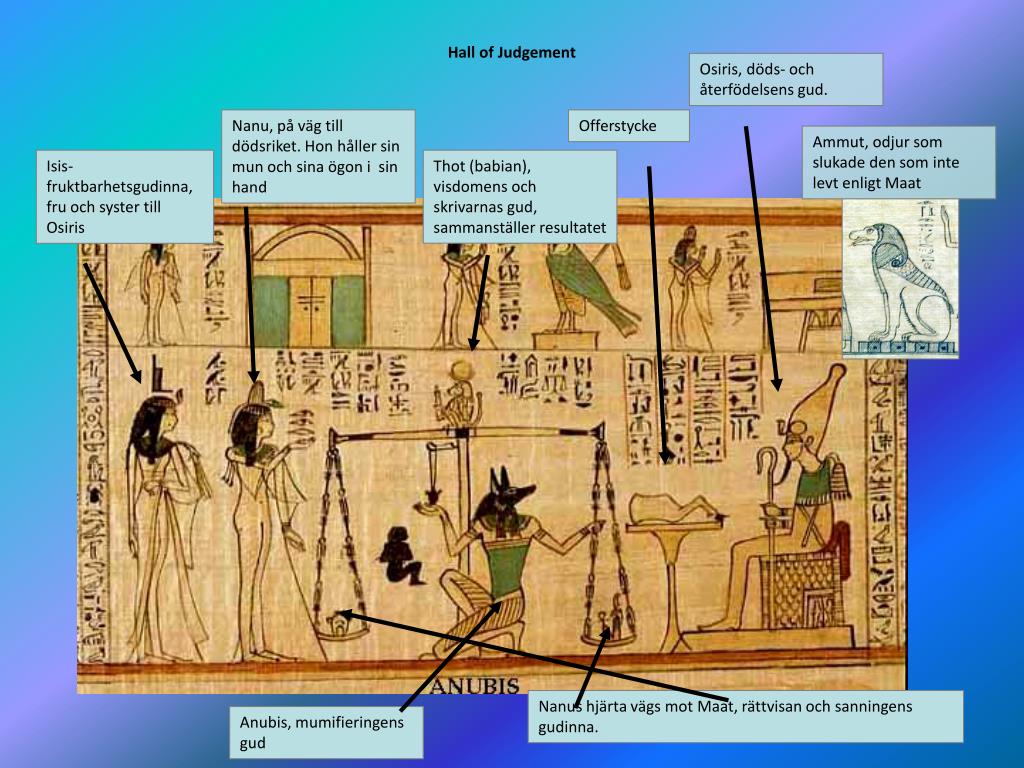 Hall of Judgement
Osiris, döds- och
återfödelsens gud.
Nanu, på väg till
dödsriket. Hon håller sin
mun och sina ögon i  sin
hand
Offerstycke
Ammut, odjur som
slukade den som inte
levt enligt Maat
Isis-
fruktbarhetsgudinna,
fru och syster till
Osiris
Thot (babian),
visdomens och
skrivarnas gud,
sammanställer resultatet
ANUBIS
Nanus hjärta vägs mot Maat, rättvisan och sanningens
gudinna.
Anubis, mumifieringens
gud